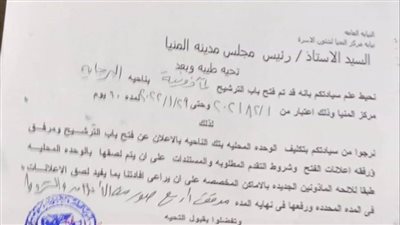 النيابه العامه
نيابه مركز المنيا لشئون الاسرة
السيد الاستاذ/ رئيس مجلس مدينه المنيا
تحيه طيبه وبعد
نحيط علم سيادتكم بانه قد تم فتح باب الترشيح بناحيه البرجايه
مركز المنيا وذلك اعتبار من وحتى المده ٦٠ يوم
لذلك
نرجوا من سيادتكم بتكليف الوحده المحليه بتلك الناحيه بالاعلان عن فتح باب الترشيح ومرفق
ذرفقه اعلانات الفتح وشروط التقدم المطلوبه والمستندات على ان يتم لصقها بالوحده المحليه
طبقا للائحه المأذونين الجديده بالاماكن المخصصه على ان يراعى افادتنا بما يفيد لصق الاعلانات
فى المده المحدده ورفعها فى نهايه المده مرفق اربع صور من الاعلان والشروط
وتفضلوا بقبول التحيه